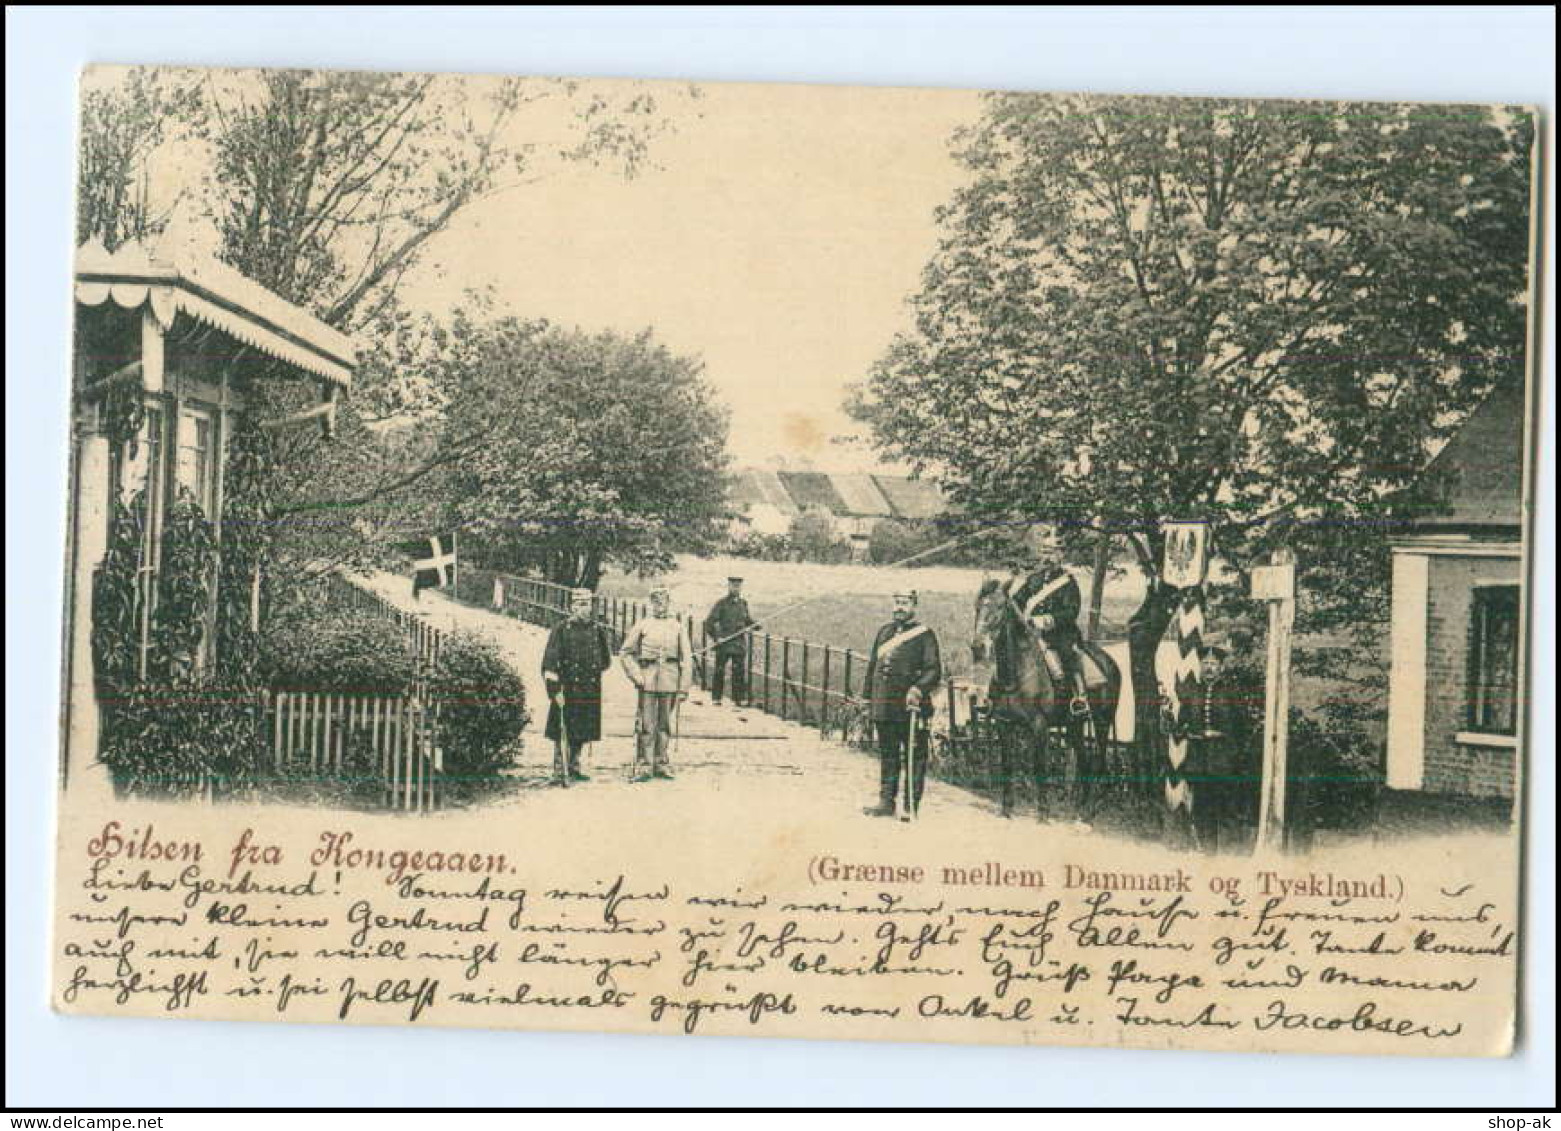 Hilsen fra Kongeaaen.
(Grænse mellem Danmark og Tyskland.)
Liebe Gertrud! Sonntag reisen wir wieder, nach Hause u. freuen uns,
unsere kleine Gertrud wieder zu sehen. Geht's Euch Allen gut. Tante kommt
auch mit, sie will nicht länger hier bleiben. Grüß Papa und Mama
herzlichst u. sei selbst vielmals gegrüßt von Onkel u. Tante Jacobsen
shop-ak